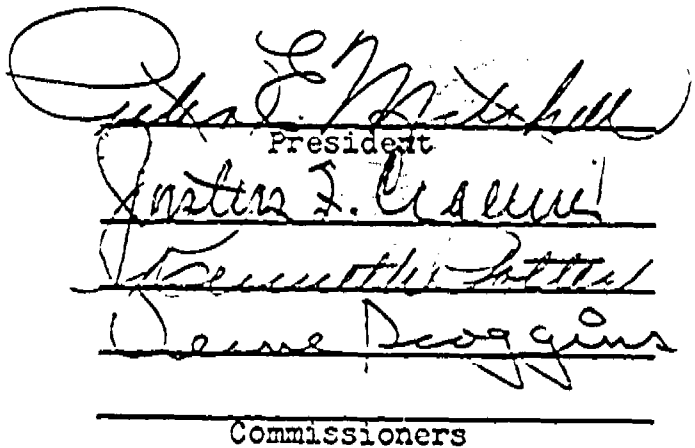 Peter E. Mitchell
President
Justus F. Craemer
Kenneth Potter
Scoggins
Commissioners